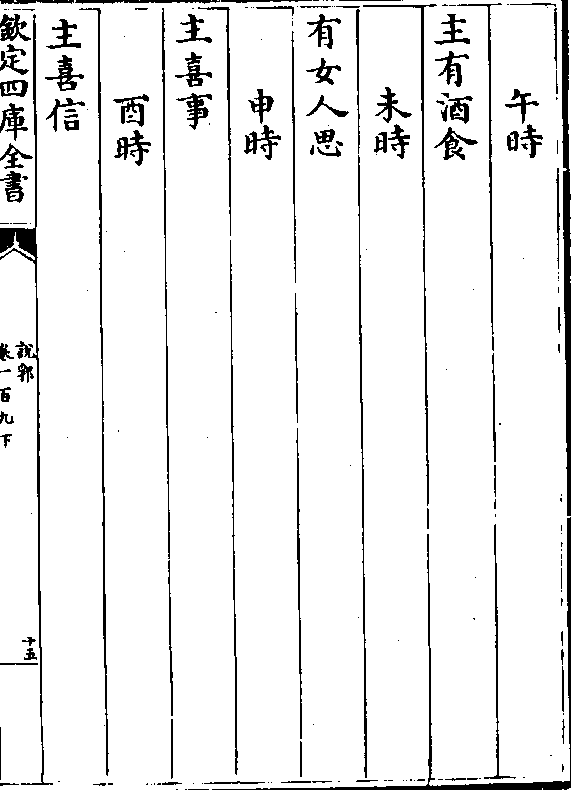 午時
主有酒食
未時
有女人思
申時
主喜事
酉時
主喜信
欽定四庫全書
說郛
卷一百九下
十五